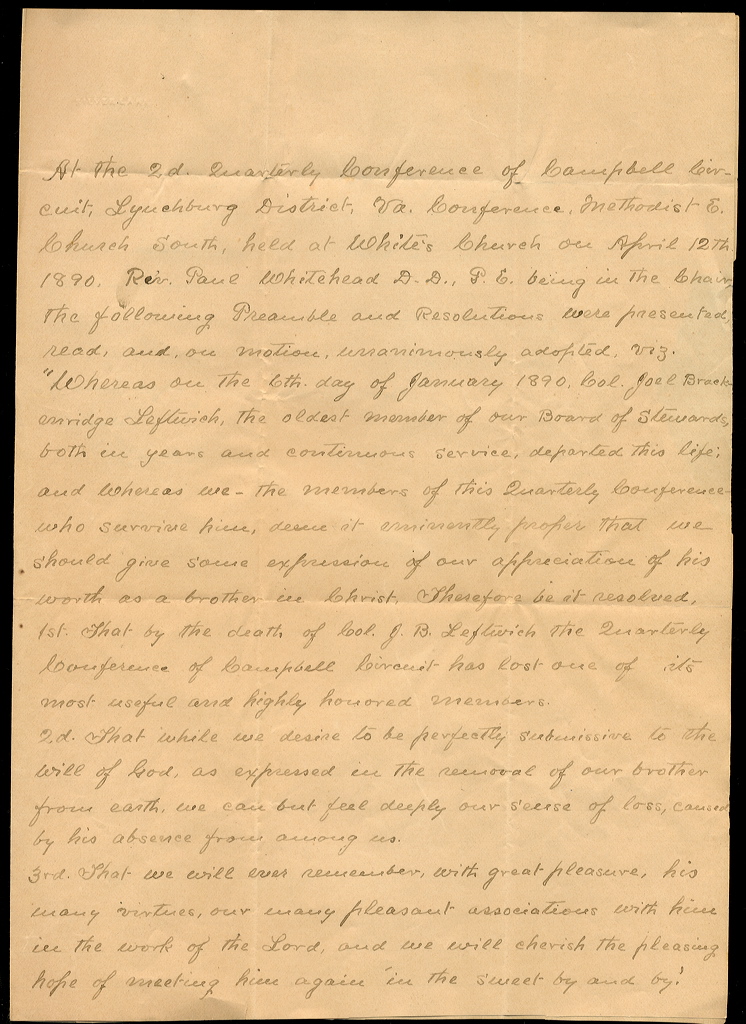 At the 2d. Quarterly Conference of Campbell Cir-
cuit, Lynchburg District, Va. Conference, Methodist E.
Church South, held at White's Church on April 12th
1890, Rev. Paul Whitehead D.D., P.E. being in the Chair,
the following Preamble and Resolutions were presented,
read, and, on motion, unanimously adopted, viz.
"Whereas on the 6th. day of January 1890, Col. Joel Brack-
enridge Leftwich, the oldest member of our Board of Stewards,
both in years and continuous service, departed this life;
and whereas we - the members of this Quarterly Conference
who survive him, deem it eminently proper that we
should give some expression of our appreciation of his
worth as a brother in Christ, Therefore be it resolved,
1st. That by the death of Col. J. B. Leftwich the Quarterly
Conference of Campbell Circuit has lost one of its
most useful and highly honored members.
2d. That while we desire to be perfectly submissive to the
will of God, as expressed in the removal of our brother
from earth, we can but feel deeply our sense of loss, caused
by his absence from among us.
3rd. That we will ever remember, with great pleasure, his
many virtues, our many pleasant associations with him
in the work of the Lord, and we will cherish the pleasing
hope of meeting him again "in the sweet by and by."